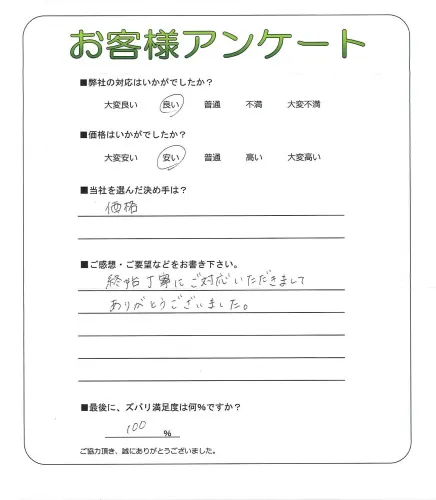 お客様アンケート
■弊社の対応はいかがでしたか？
大変良い 良い 普通 不満 大変不満
■価格はいかがでしたか？
大変安い 安い 普通 高い 大変高い
■当社を選んだ決め手は？
価格
■ご感想・ご要望などをお書き下さい。
終始丁寧にご対応いただきまして
ありがとうございました。
■最後に、ズバリ満足度は何%ですか？
100 %
ご協力頂き、誠にありがとうございました。